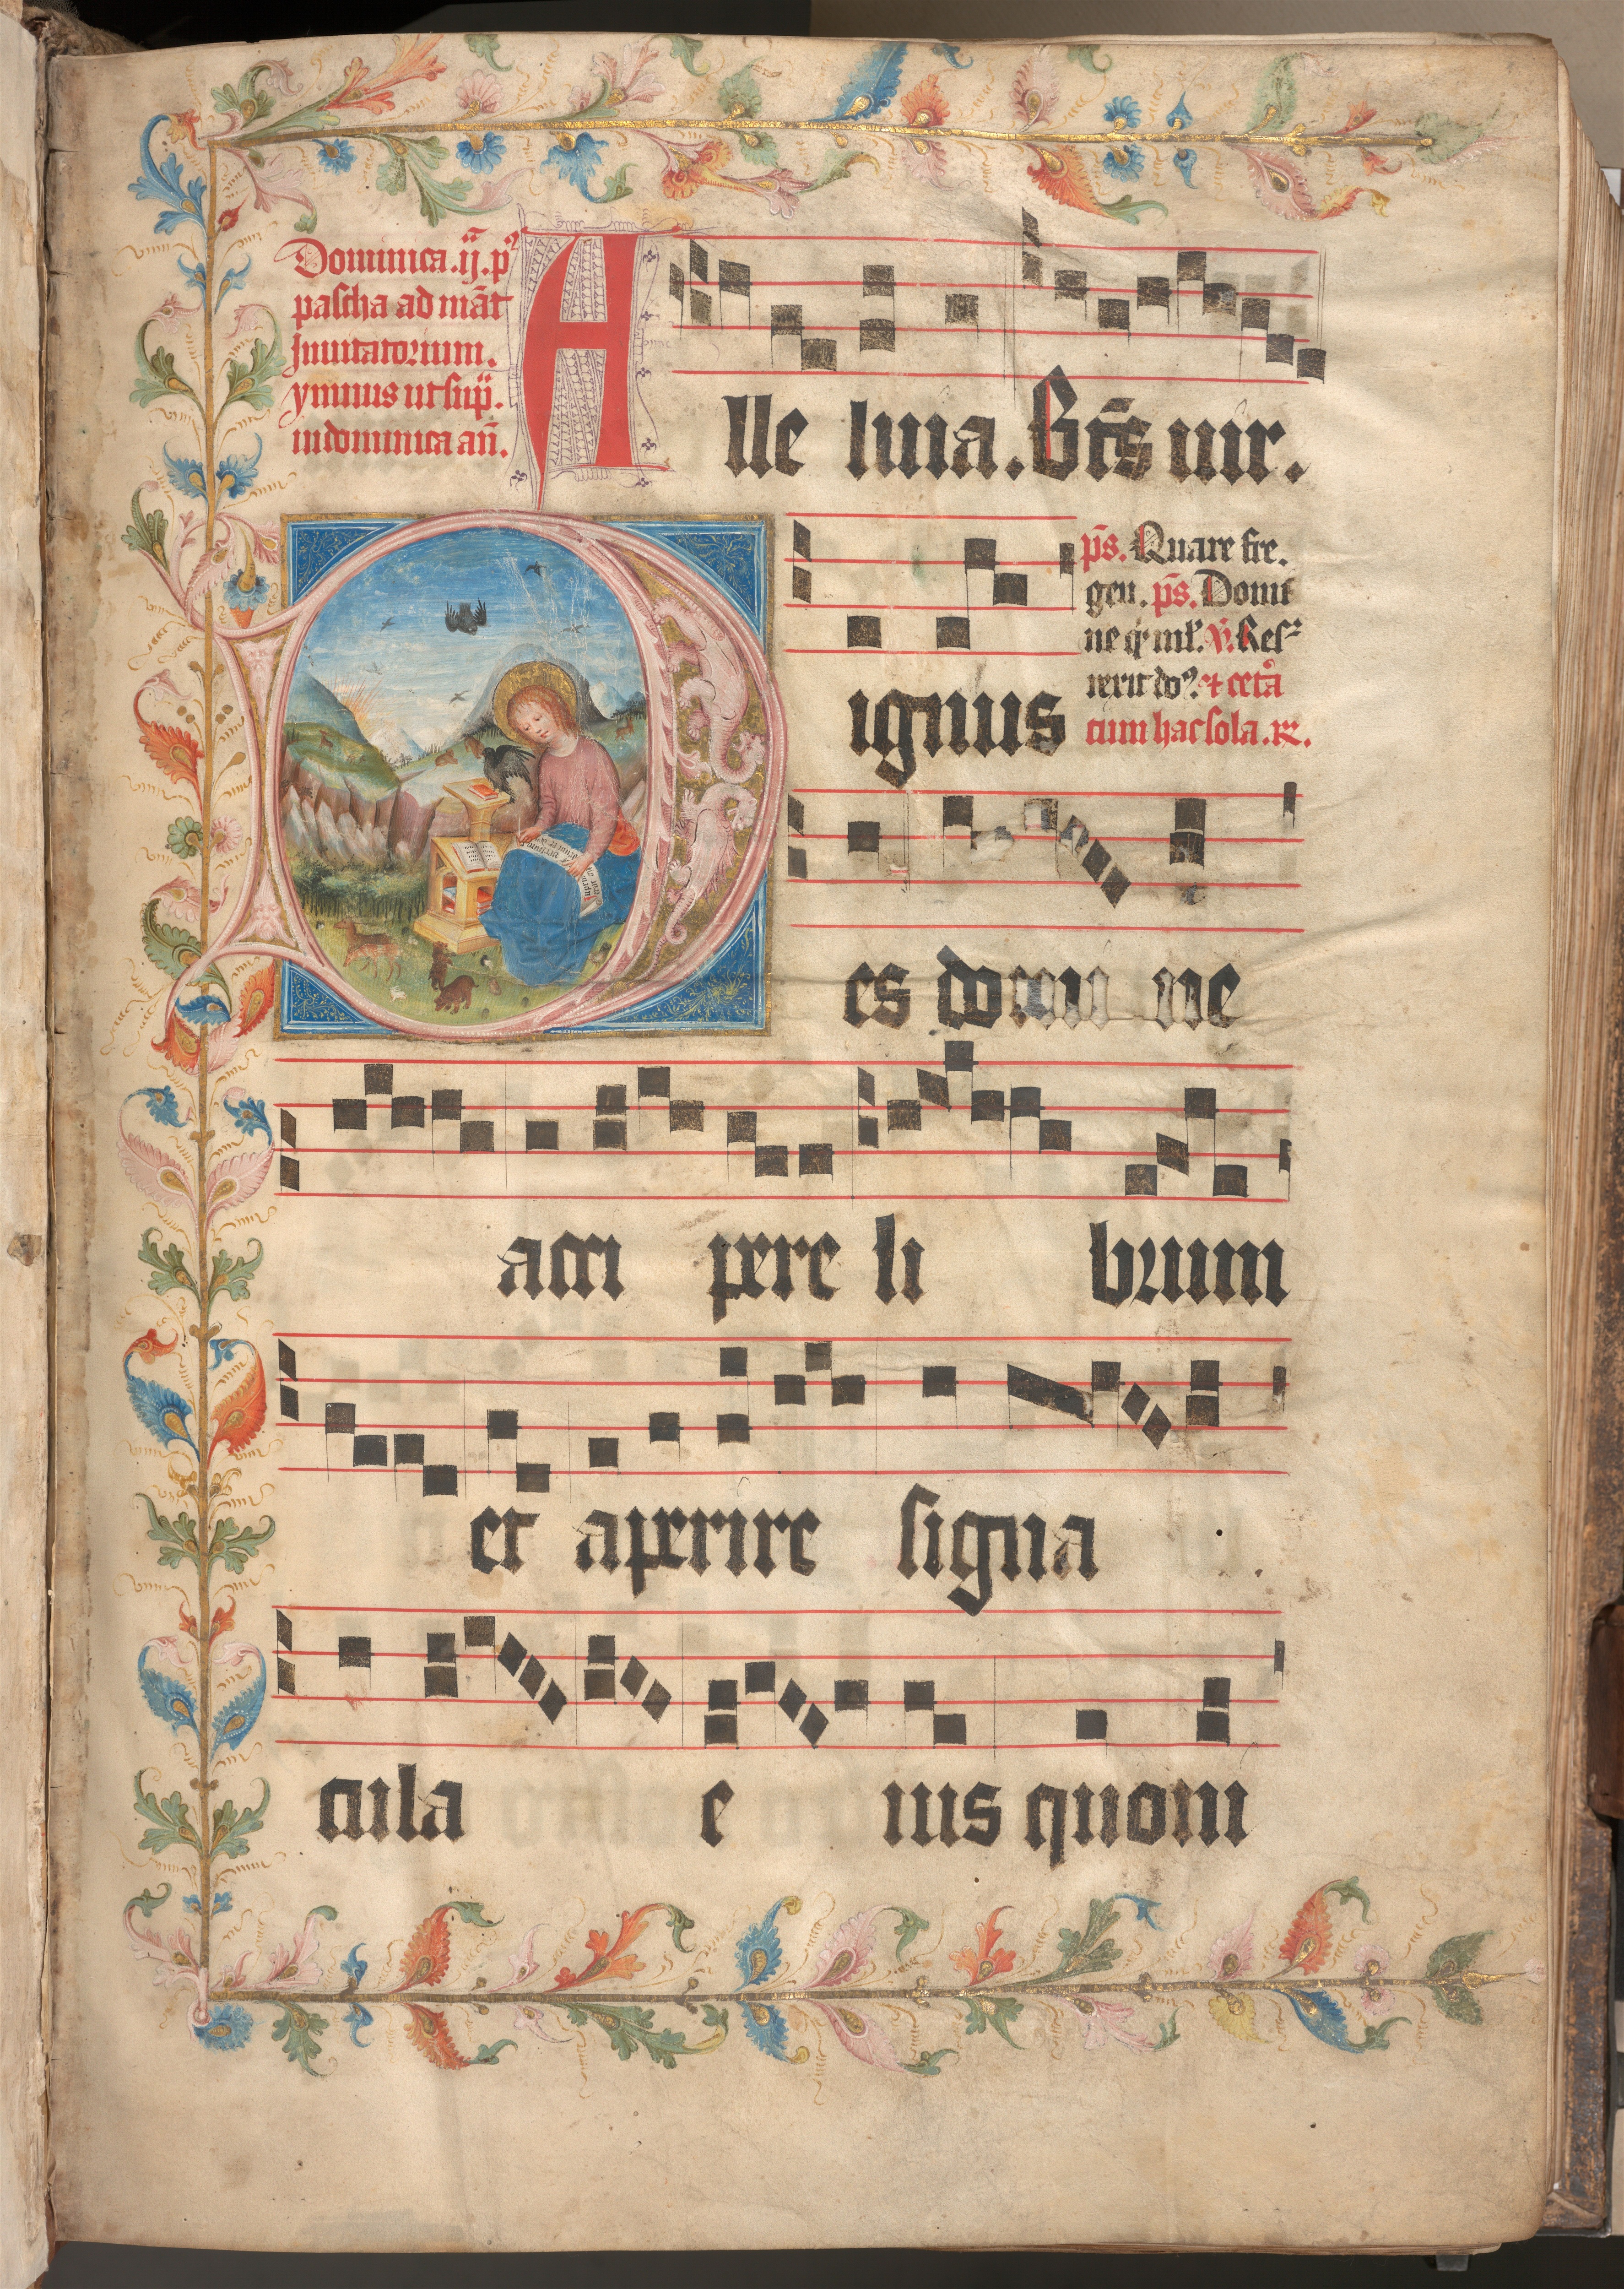 Dominica .ij. p
pascha ad mat̄
Inuitatorium.
ymnus ut sup̄.
in dominica an̄.
Alle luia. Bt̄s uir.
p̄s. Quare fre.
gnius
Dignus
p̄s. Domi
ne
et cet̄a
cum hac sola .
es domi ne
acci pere li brum
et aperire signa
cula e ius quoni